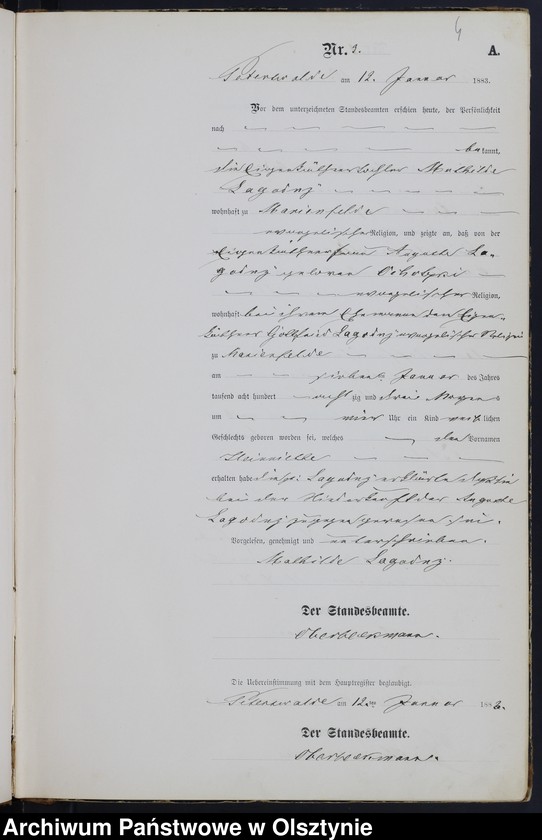 4
Nr. 3. A.
Peterswalde am 12. Januar 1883.
Vor dem unterzeichneten Standesbeamten erschien heute, der Persönlichkeit
nach
bekannt,
die Eigenkäthnertochter Mathilde
Lagodny
wohnhaft zu Marienfelde
evangelischer Religion, und zeigte an, daß von der
Eigenkäthnerfrau Auguste La-
godny geboren
evangelischer Religion,
wohnhaft bei ihrem Ehemanne dem Eigen-
käthner Gottfried Lagodny evangelischer Religion
zu Marienfelde
am siebent. Januar des Jahres
tausend acht hundert achtzig und drei Morgens
um vier Uhr ein Kind weiblichen
Geschlechts geboren worden sei, welches den Vornamen
Henriette
erhalten habe die p. Lagodny erklärte daß sie
bei der Niederkunft der Auguste
Lagodny zugegen gewesen sei.
Vorgelesen, genehmigt und unterschrieben.
Mathilde Lagodny.
Der Standesbeamte.
Oberbeckmann.
Die Uebereinstimmung mit dem Hauptregister beglaubigt.
Peterswalde am 12. ten Januar 1883.
Der Standesbeamte.
Oberbeckmann.
Archiwum Państwowe w Olsztynie